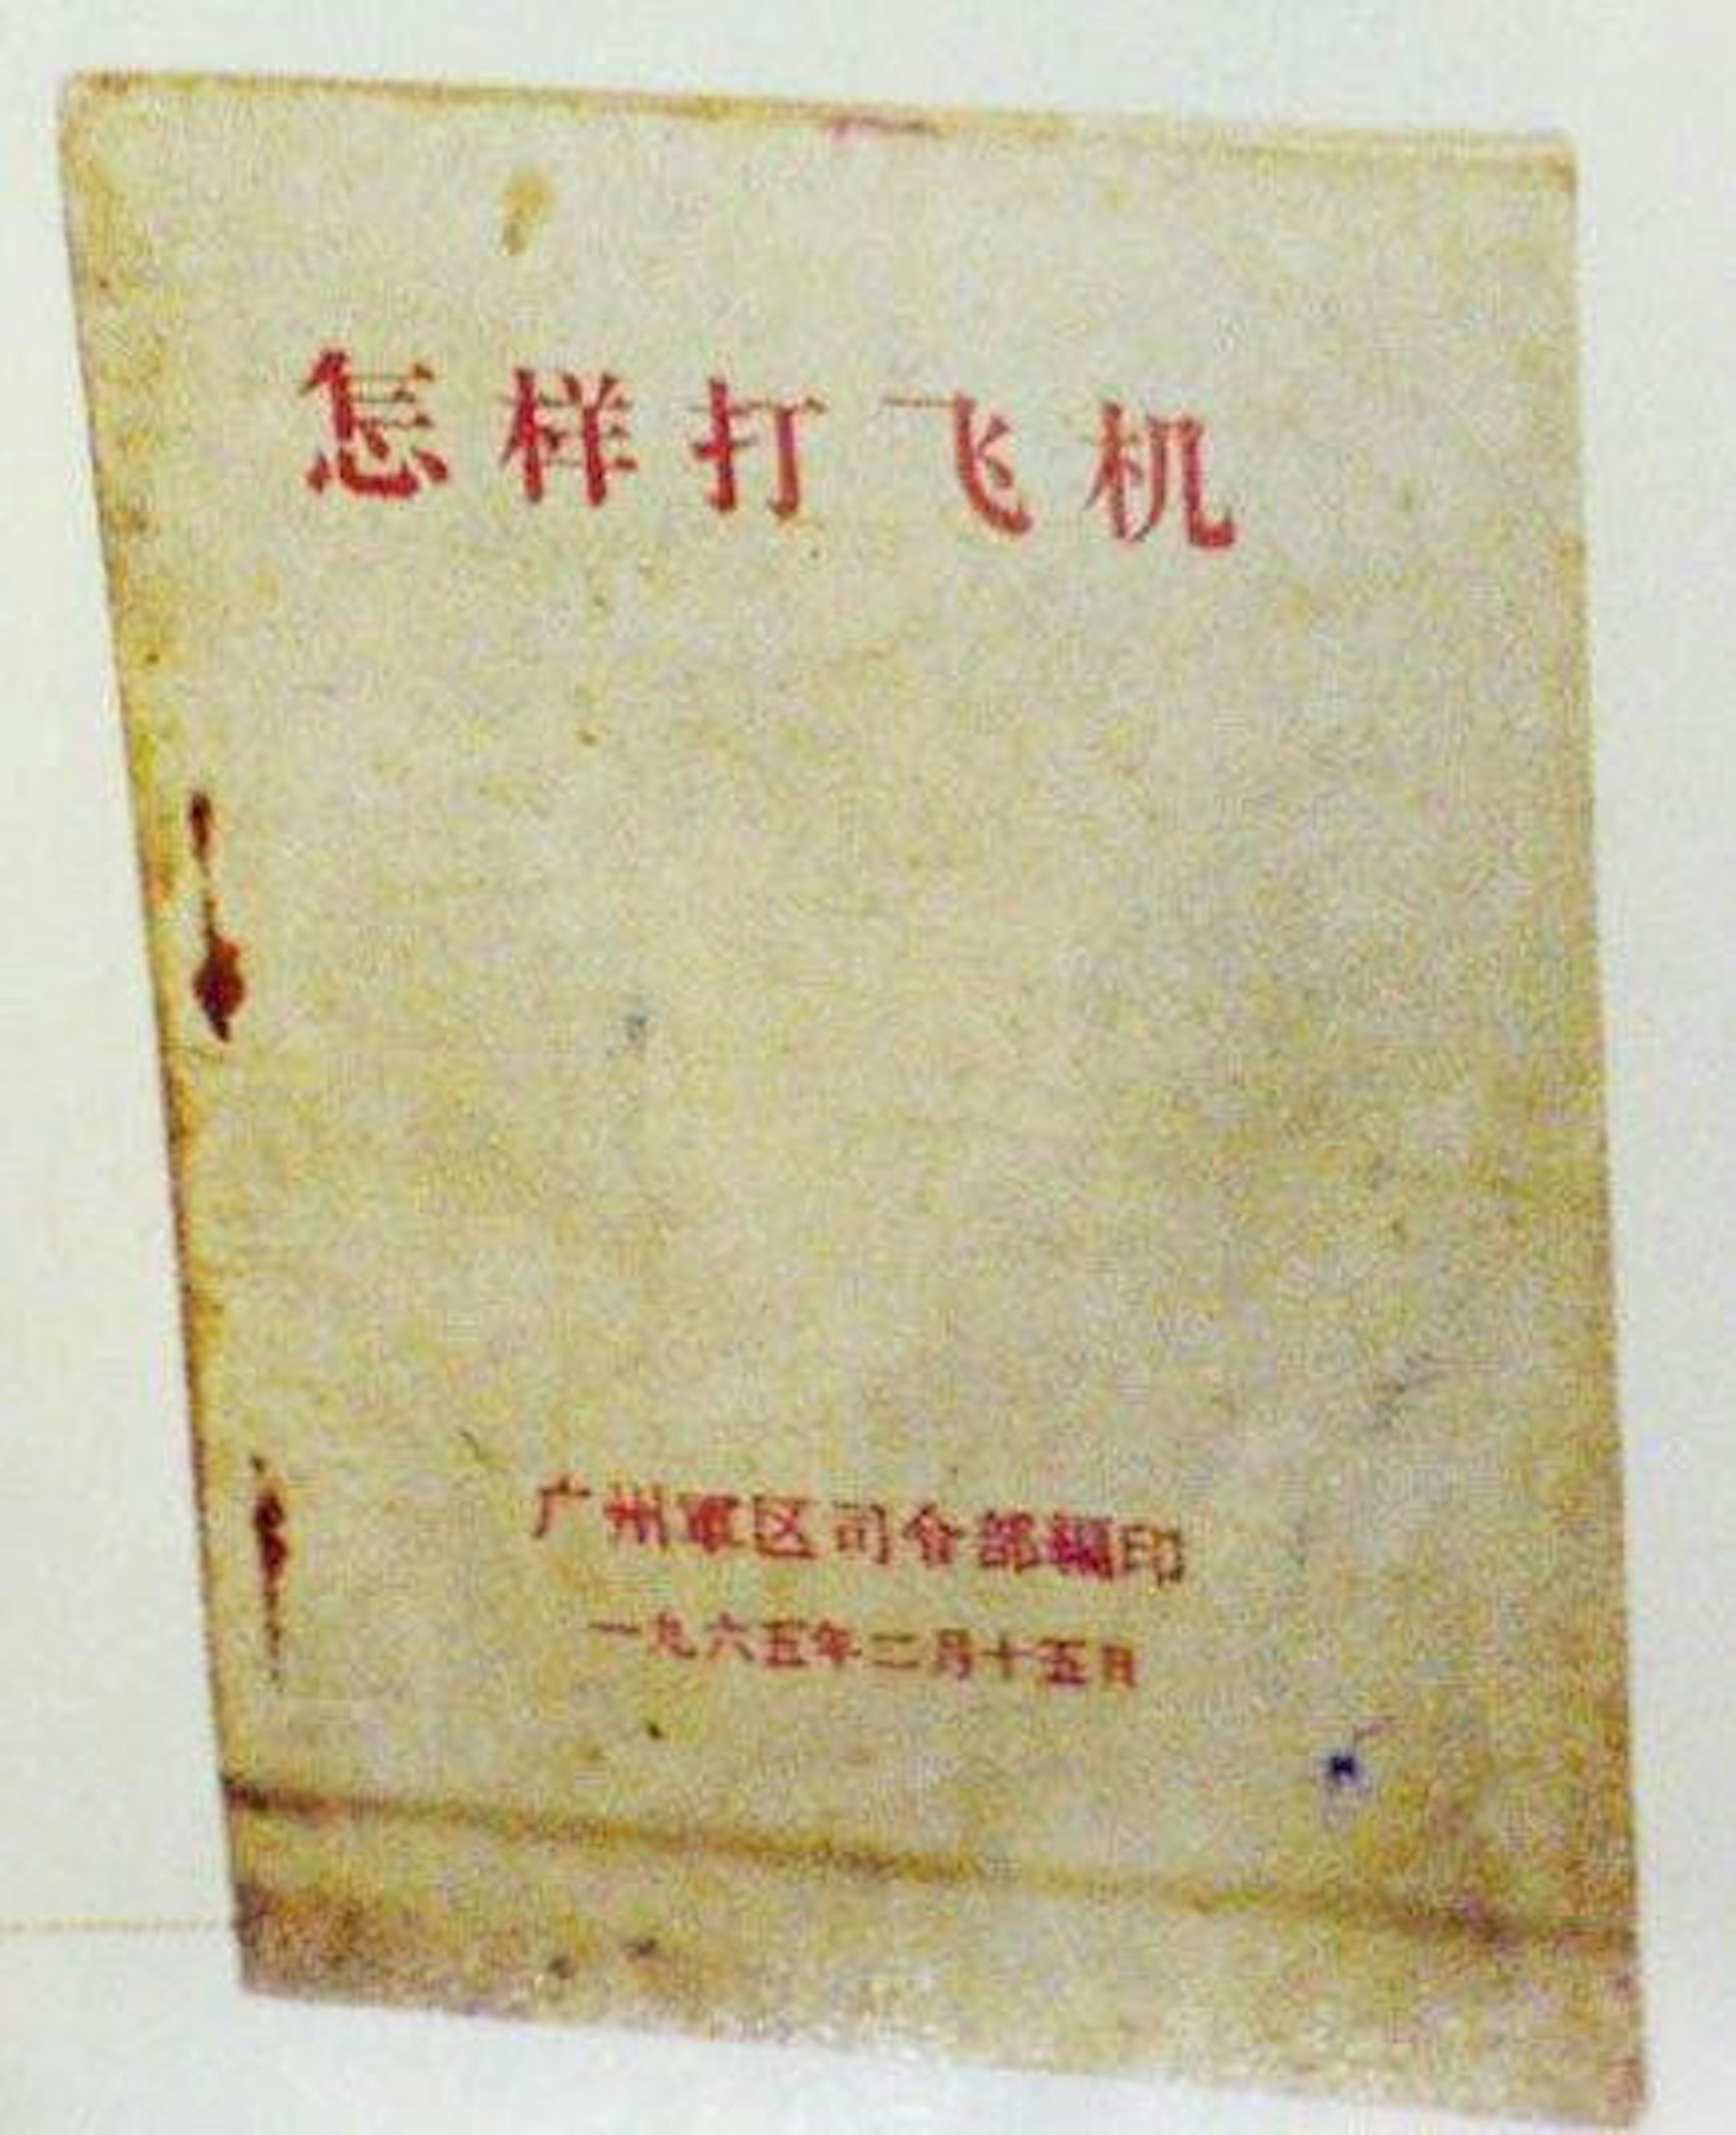 怎样打飞机
广州軍区司令部編印
一九六五年二月十五日